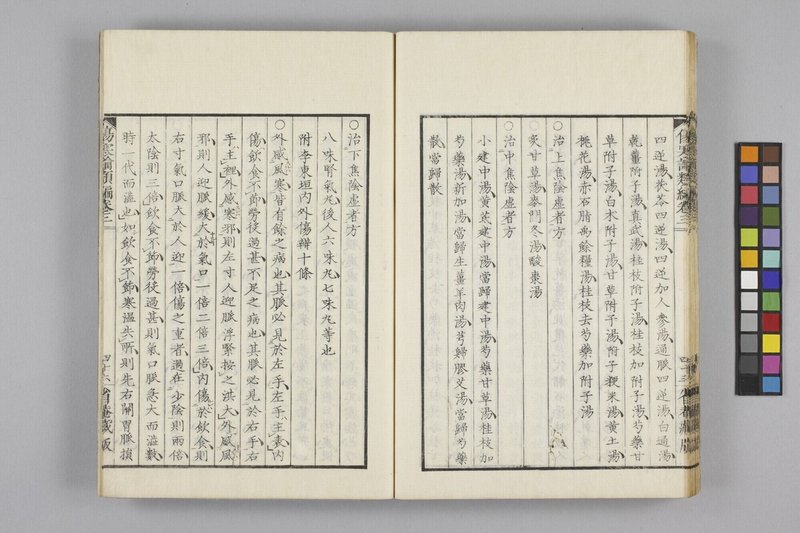 四逆湯茯苓四逆湯四逆加人參湯通脈四逆湯白通湯
乾薑附子湯真武湯桂枝附子湯桂枝加附子湯芍藥甘
草附子湯白木附子湯甘草附子湯附子粳米湯黃土湯
桃花湯赤石脂禹餘糧湯桂枝去芍藥加附子湯
○治上焦陰虛者方
炙甘草湯麥門冬湯酸棗湯
○治中焦陰虛者方
小建中湯黃芪建中湯當歸建中湯芍藥甘草湯桂枝加
芍藥湯新加湯當歸生薑羊肉湯芎歸膠艾湯當歸芍藥
散當歸散
○治下焦陰虛者方
八味腎氣丸後人六味丸七味丸等也
附李東垣内外傷辯十條
○外感風寒皆有餘之病也其脈必見於左手左手主表内
傷飲食不節勞役過甚不足之病也其脈必見於右手右
手主裡外感寒邪則左寸人迎脈浮緊按之洪大外感風
邪則人迎脈緩大於氣口一倍二倍三倍内傷於飲食則
右寸氣口脈大於人迎一倍傷之重者過在少陰則兩倍
太陰則三倍飲食不節勞役過甚則氣口脈急大而澁數
時一代而澁也如飲食不節寒溫失所則先右關胃脈損
傷寒論類編卷三